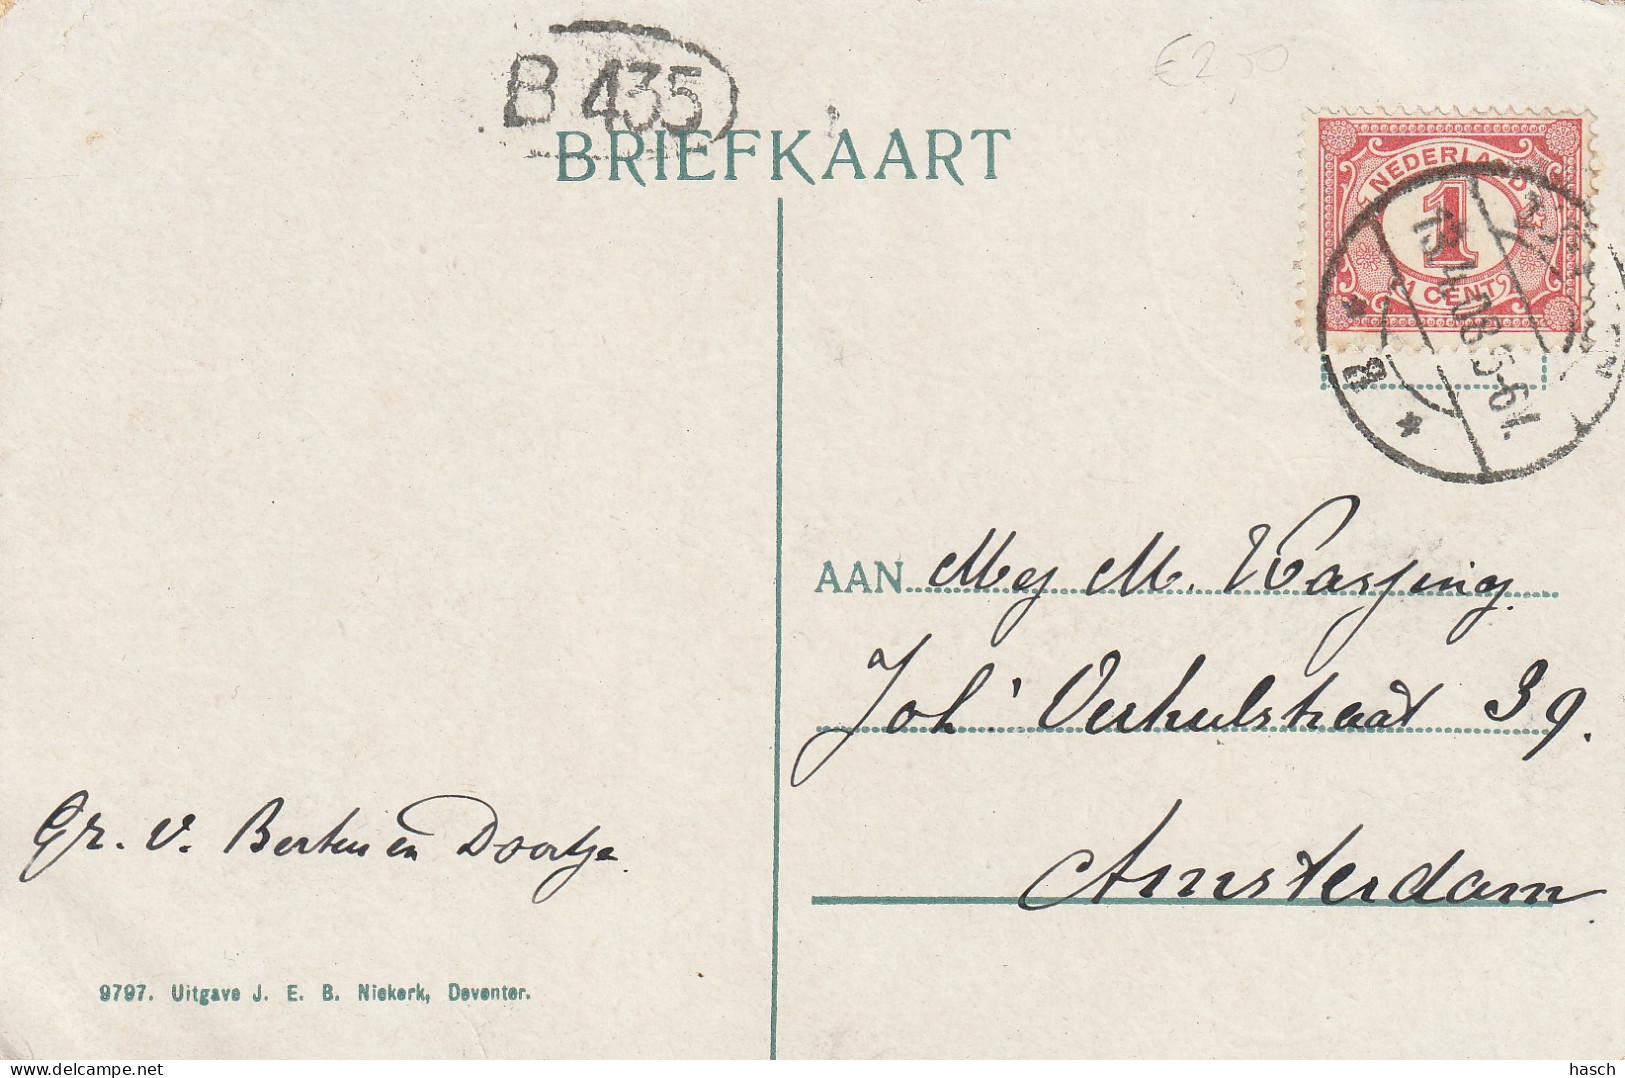 €2,00
B 435
BRIEFKAART
NEDERLAND
1
1 CENT
13.4.08.5-6N.
AAN Mej M. Warsing.
Joh' Verhulstraat 39.
Amsterdam.
Gr. v. Bertus en Doortje.
9797. Uitgave J. E. B. Niekerk, Deventer.
delcampe.net
hasch